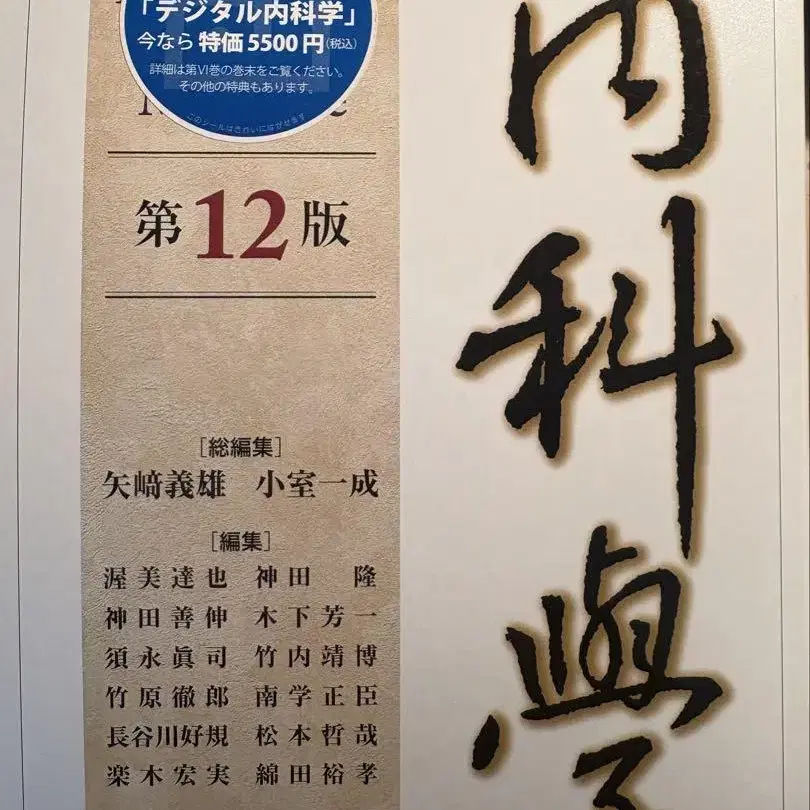 「デジタル内科学」
今なら 特価 5500 円(税込)
詳細は第Ⅵ巻の巻末をご覧ください。
その他の特典もあります。
このシールはきれいにはがせます
第12版
[総編集]
矢﨑義雄 小室一成
[編集]
渥美達也 神田 隆
神田善伸 木下芳一
須永眞司 竹内靖博
竹原徹郎 南学正臣
長谷川好規 松本哲哉
楽木宏実 綿田裕孝
内科學